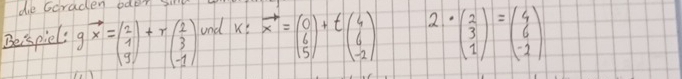 die Geraden oder sind
Beispiel: g x→ = (2 1 9) + r (2 3 -1) und k: x→ = (0 6 5) + t (4 6 -2) 2 · (2 3 1) = (4 6 -2)